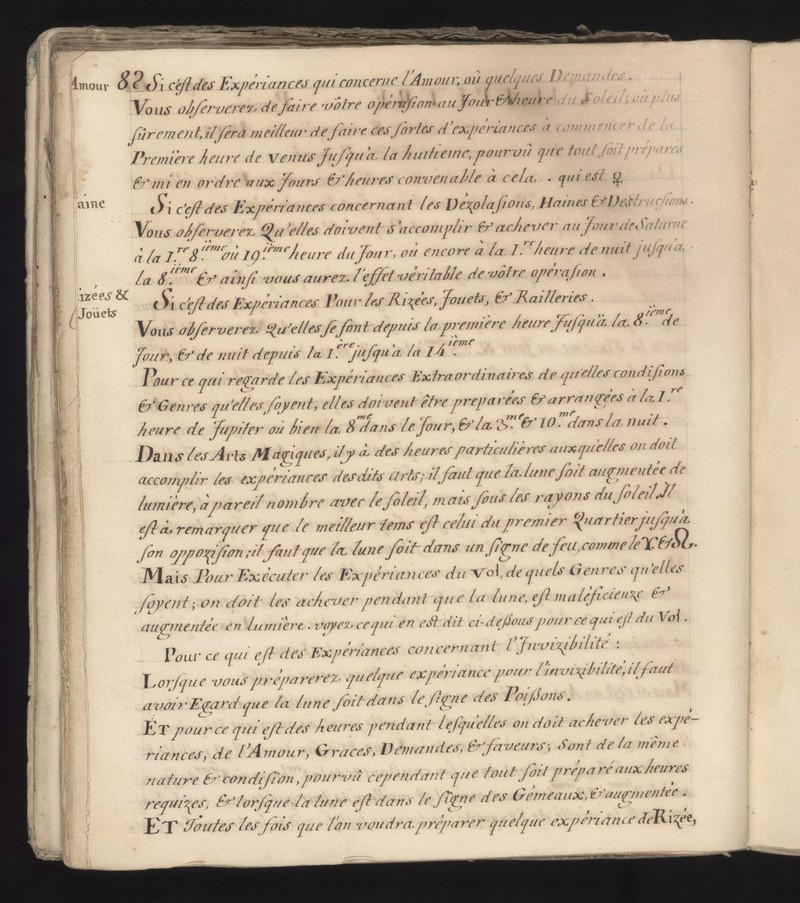 Amour 82 Si c'est des Expériances qui concerne l'Amour, où quelques Demandes.
Vous observerez de faire vôtre opérasion au Jour & heure du Soleil; où plus
sûrement, il sera meilleur de faire ces sortes d'expériances a commencer de la
Première heure de Venus Jusqu'a la huitieme, pourvû que tout soit préparés
& mi en ordre aux Jours & heures convenable à cela. . qui est ♀
aine Si c'est des Expériances concernant les Dézolasions, Haines & Destrucsions.
Vous observerez Qu'elles doivent s'accomplir & achever au Jour de Saturne
à la I.re 8.ième où 19.ième heure du Jour, où encore à la I.re heure de nuit jusqu'a
la 8.ième & ainsi vous aurez l'effet véritable de vôtre opérasion.
izées & Joüets Si c'est des Expériances Pour les Rizées, Jouets, & Railleries.
Vous observerez Qu'elles se font depuis la première heure Jusqu'à la 8.ième de
Jour, & de nuit depuis la I.ere jusqu'a la 14.ième
Pour ce qui regarde les Expériances Extraordinaires de qu'elles condisions
& Genres qu'elles soyent, elles doivent être preparées & arrangées à la I.re
heure de Jupiter où bien la 8me dans le Jour, & la 3.me & 10.me dans la nuit.
Dans les Arts Magiques, il y à des heures particulières auxqu'elles on doit
accomplir les expériances desdits arts; il faut que la lune soit augmentée de
lumière, à pareil nombre avec le soleil, mais sous les rayons du soleil. Il
est à remarquer que le meilleur tems est celui du premier Quartier jusqu'a
son oppozision; il faut que la lune soit dans un signe de feu, comme le ♈ & ♌.
Mais Pour Exécuter les Expériances du vol, de quels Genres qu'elles
soyent; on doit les achever pendant que la lune, est maléficieuze &
augmentée en lumière. voyez ce qui en est dit ci-dessous pour ce qui est du Vol.
Pour ce qui est des Expériances concernant l'Invizibilité:
Lorsque vous préparerez quelque expériance pour l'invizibilité, il faut
avoir Egard que la lune soit dans le signe des Poissons.
ET pour ce qui est des heures pendant lesqu'elles on doit achever les expé-
riances, de l'Amour, Graces, Demandes, & faveurs; Sont de la même
nature & condision, pourvû cependant que tout soit préparé aux heures
requizes, & lorsque la lune est dans le signe des Gémeaux, & augmentée.
ET Toutes les fois que l'on voudra préparer quelque expériance de Rizée,